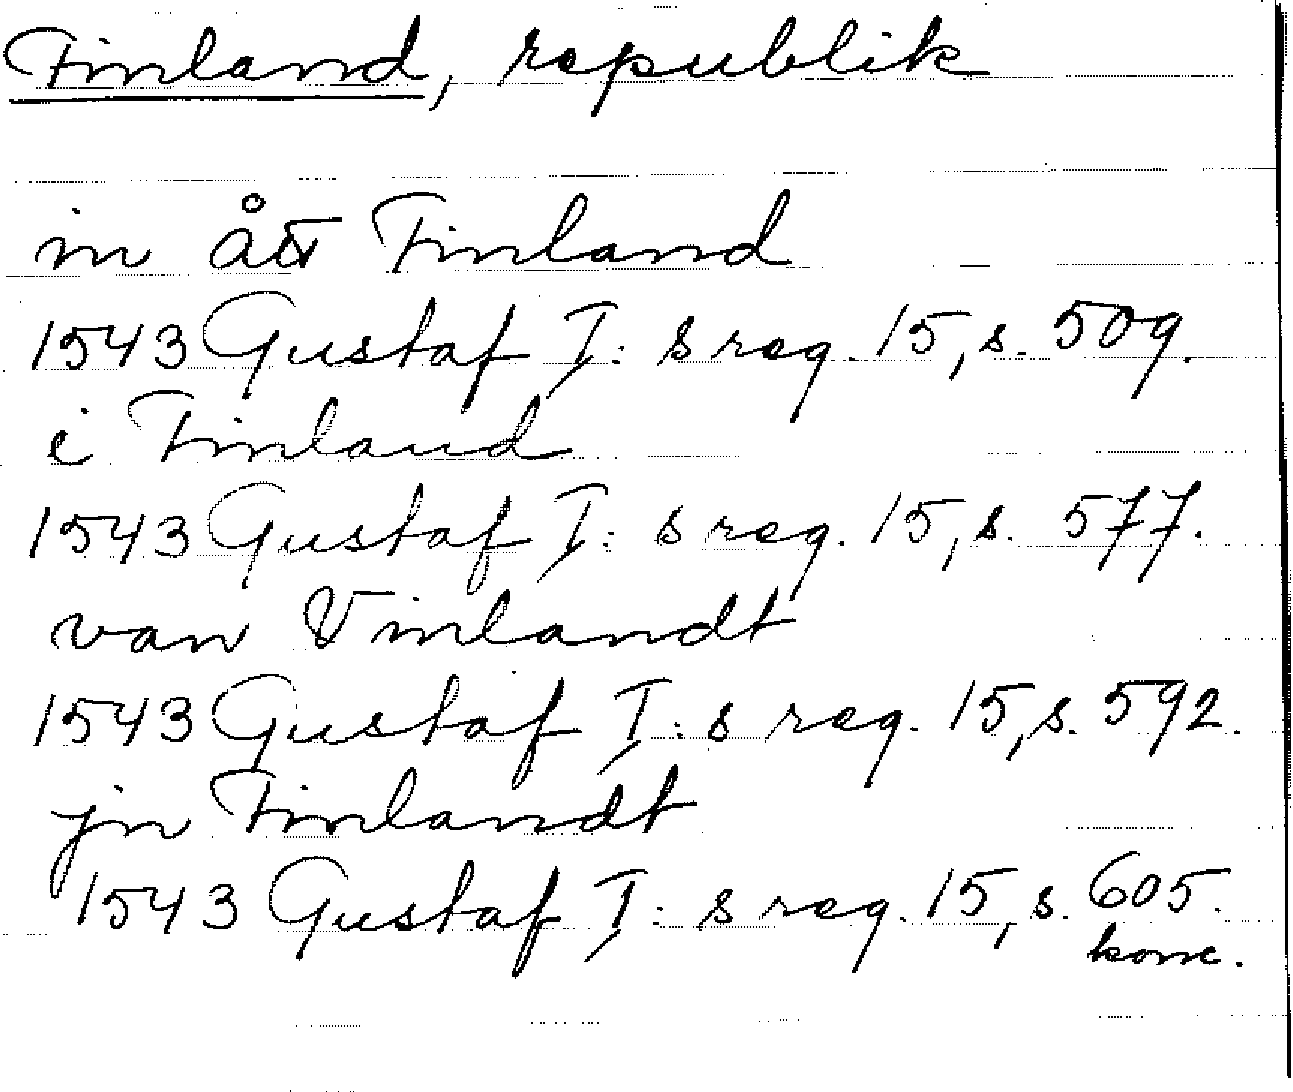 Finland, republik
in ått Finland
1543 Gustaf I: s reg. 15, s. 509.
i Finland
1543 Gustaf I: s reg. 15, s. 577.
van Vinlandt
1543 Gustaf I: s reg. 15, s. 592.
jn Finlandt
1543 Gustaf I: s reg. 15, s. 605.
konc.